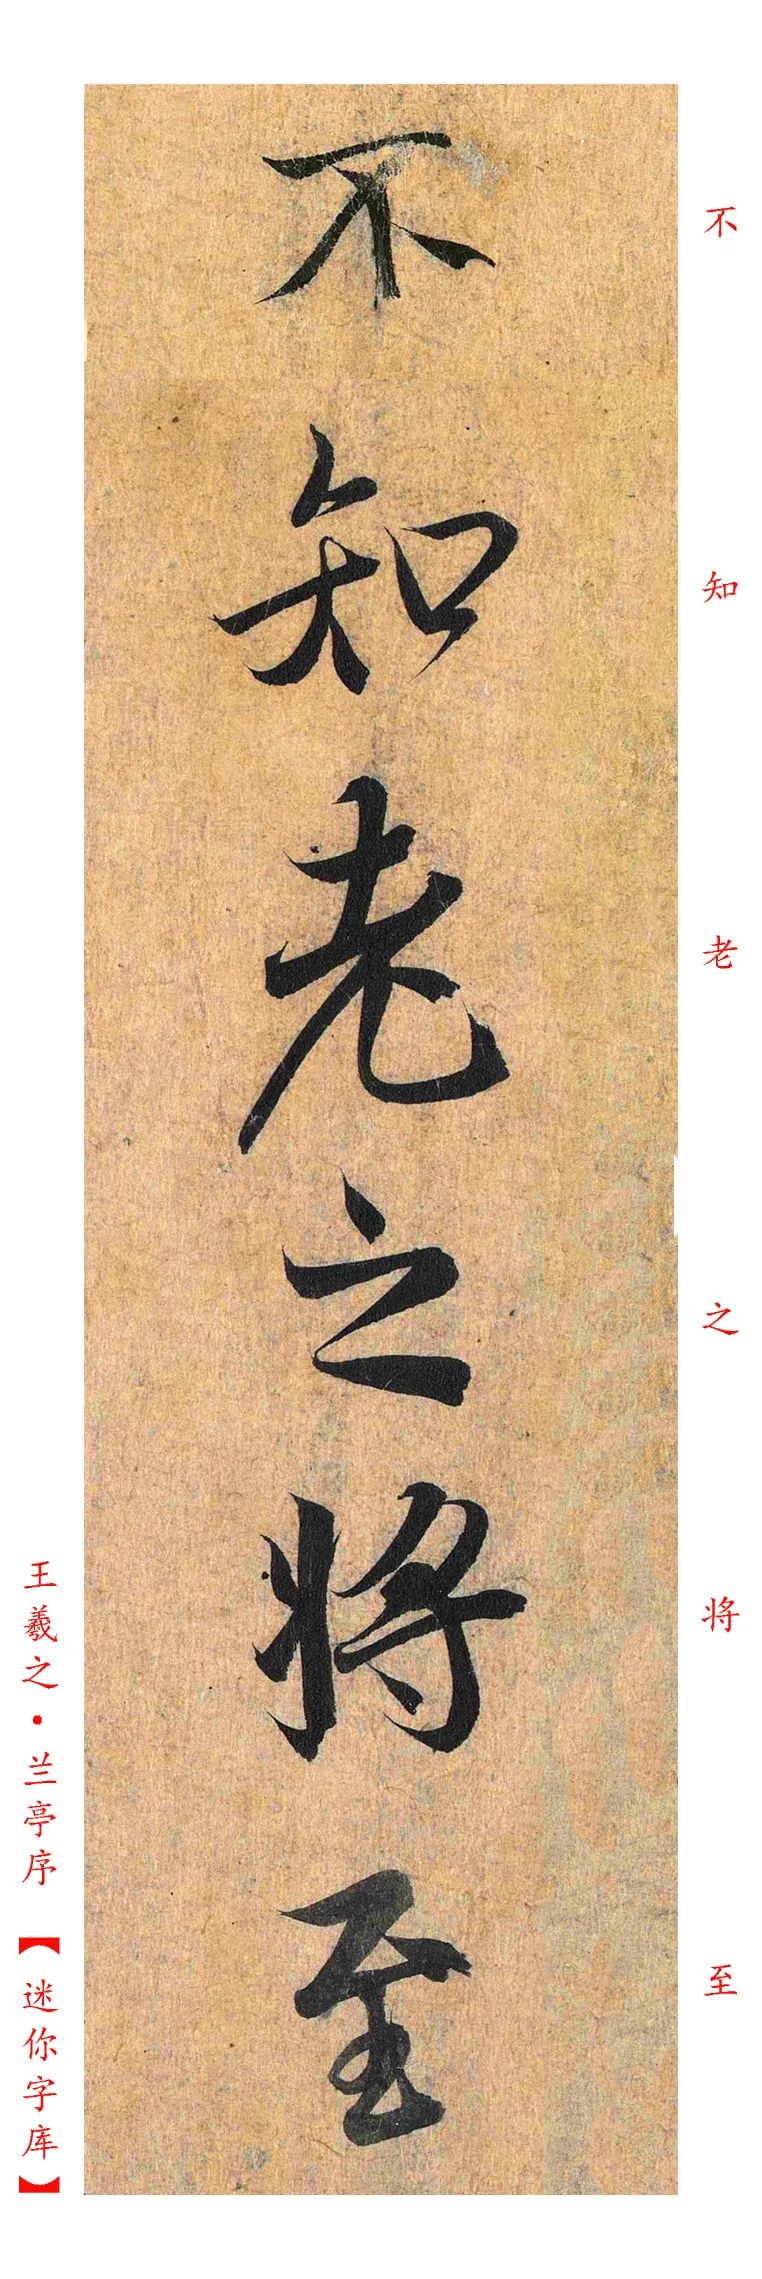 不知老之将至
不知老之将至
王羲之·兰亭序【迷你字库】